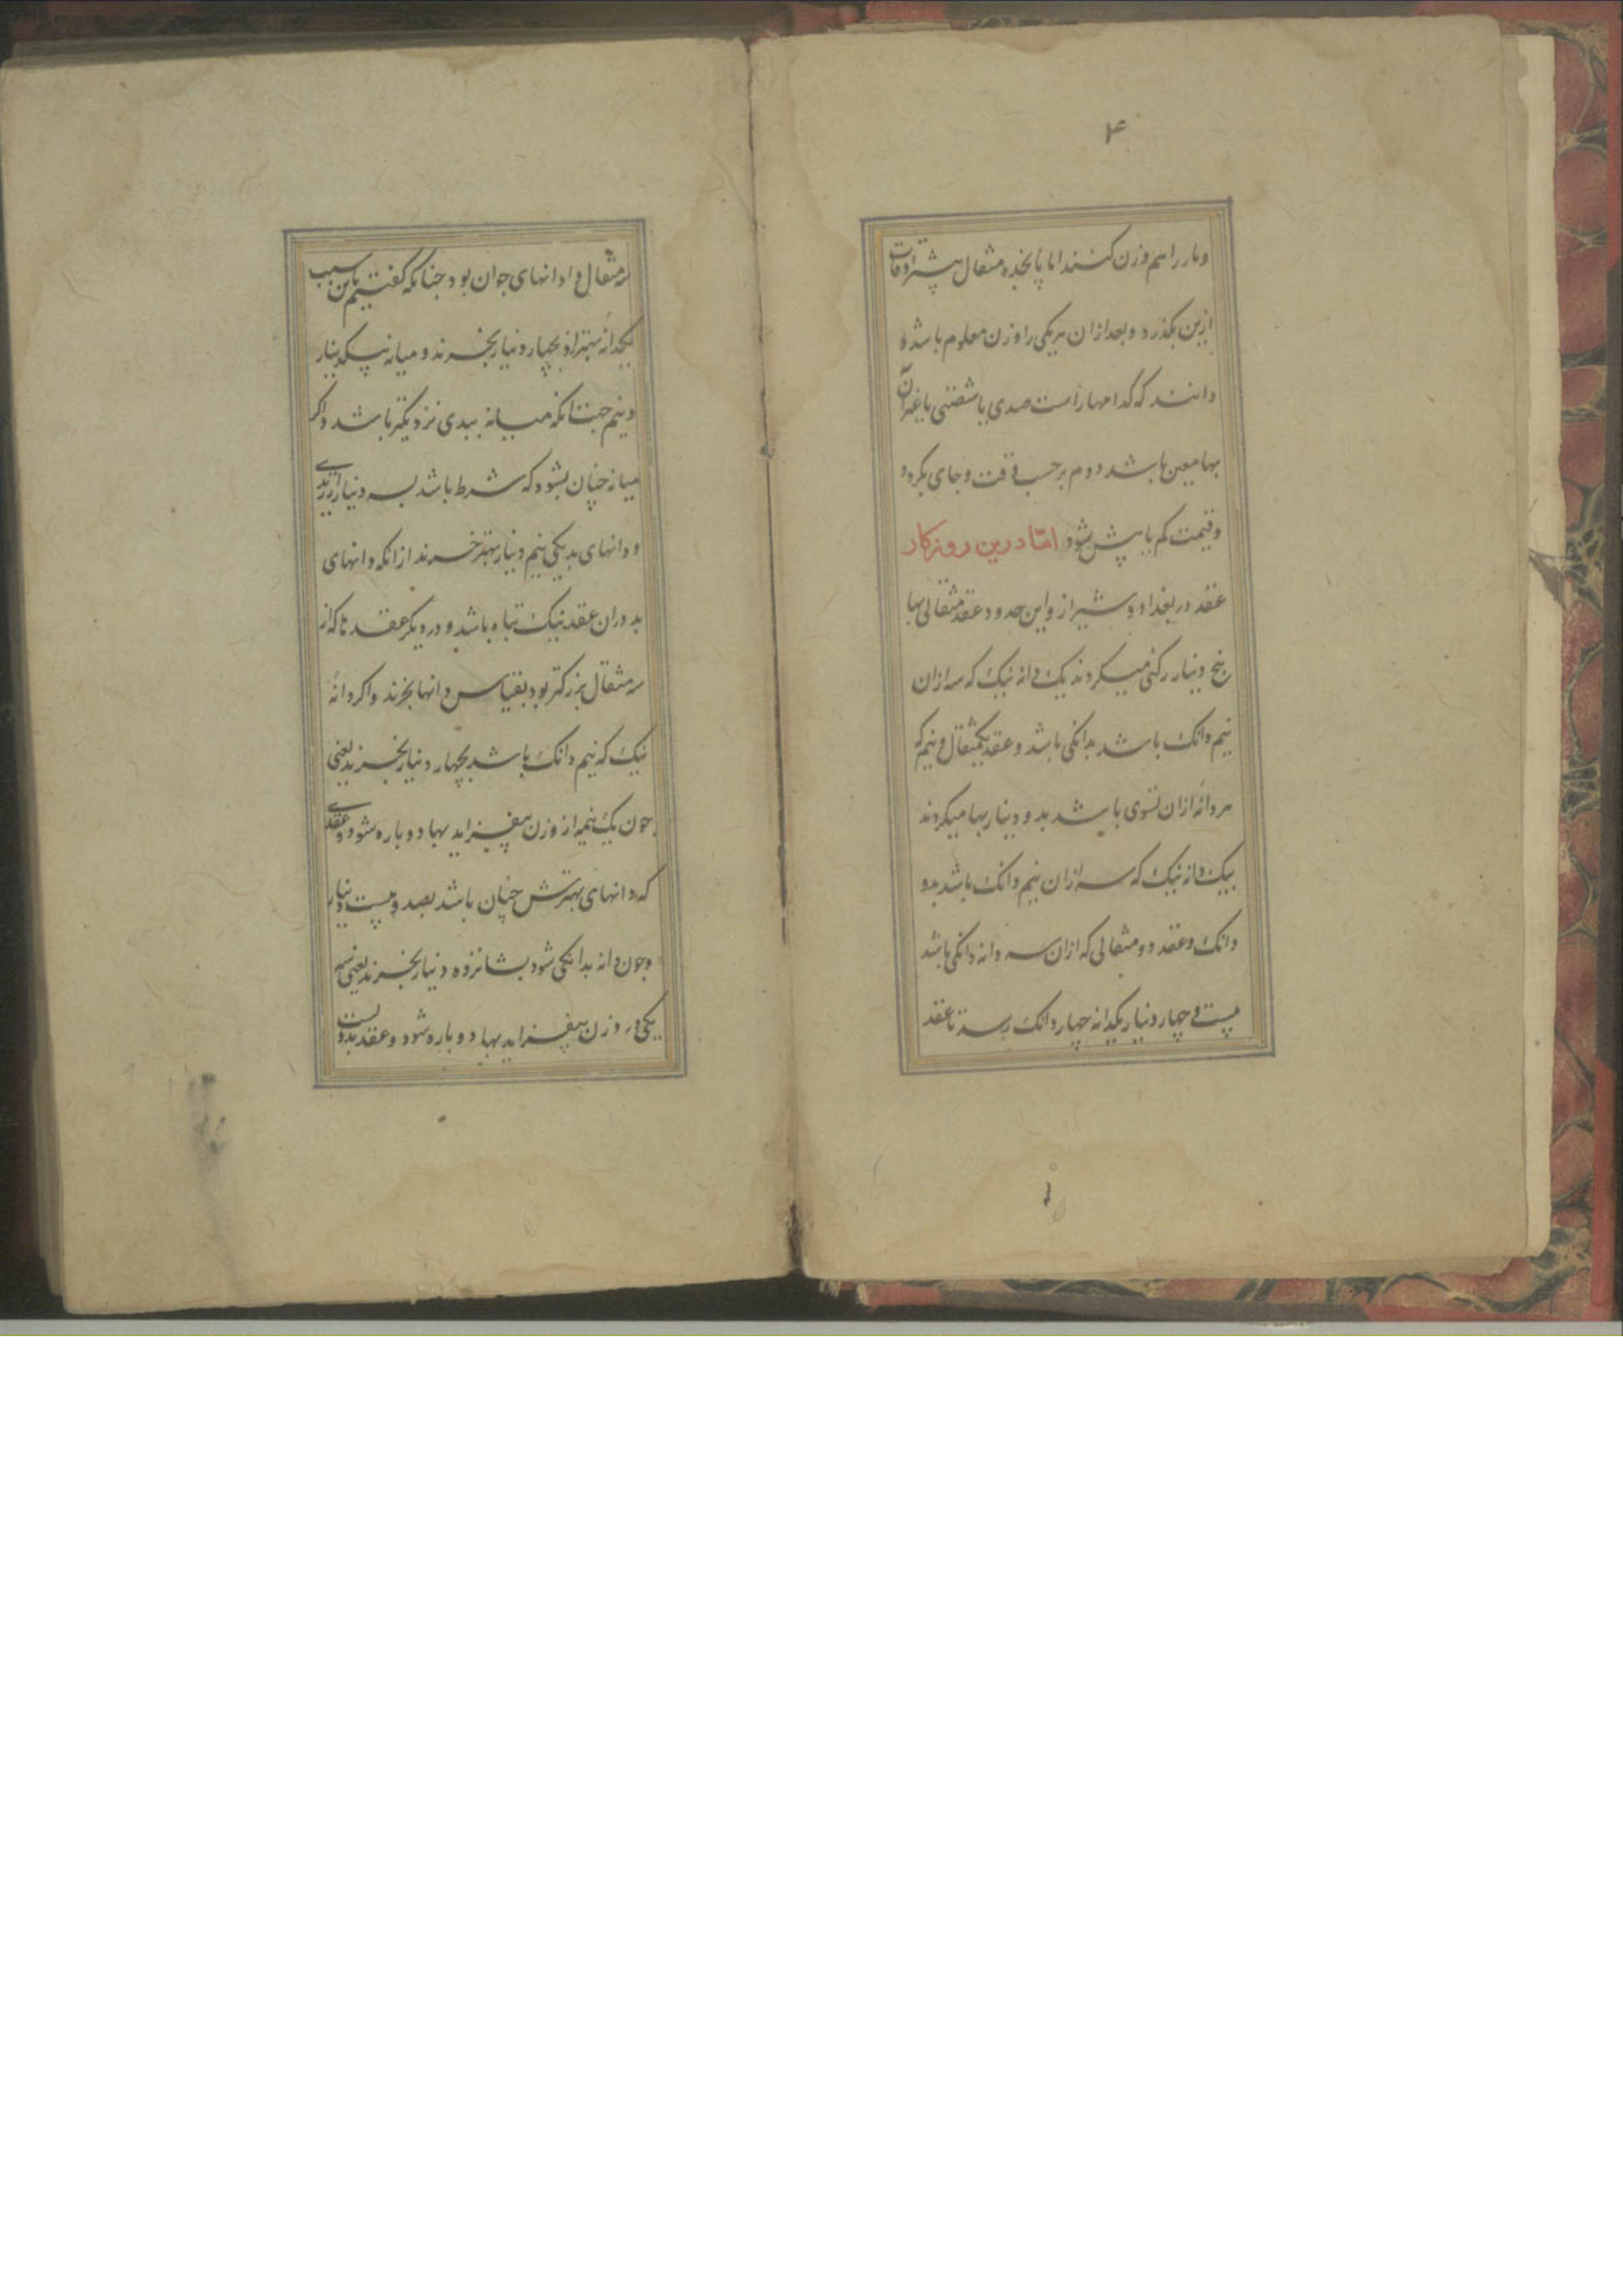 ۴
وبار را هم وزن کنند اما پانجده مثقال بیشتر اوقات
ازین بکذرد و بعد ازان هریکی را وزن معلوم باشد و
دانند که کدامها راست صدی یا شصتی یا غیر آن
بها معین باشد دوم بر حسب وقت و جای بکردد
وقیمت کم یا بیش شود امّا درین روزکار
عقد در بغداد و شیراز و این حدود عقد مثقالی بها
پنج دینار رکنی میکردند یک دانه نیک که سه ازان
نیم دانک باشد بدانکی باشد و عقد یکمثقال و نیم که
هر دانهٔ ازان تسوی باشد بدو دینار بها میکردند
یک دانه نیک که سه ازان نیم دانک باشد بدو
دانک و عقد دو مثقالی که ازان سه دانه دانکی باشد
بیست و چهار دینار یکدانه چهار دانک رسد تا عقد
سه مثقال و ادانهای جوان بود جنانکه کفتیم باین سبب
یکدانهٔ بهتر ازو بچهار دینار بخرند و میانه بیکدینار
و نیم جنانکه میانه ببدی نزدیکتر باشد و اکر
میانه جنان بشود که شرط باشد بسه دینار ارزد
و دانهای بد یکی نیم دینار بهتر خرند ازانکه دانهای
بد دران عقد نیک تباه باشد و در دیکر عقد تا که از
سه مثقال بزرکتر بود بقیاس دانها بخرند و اکر دانهٔ
نیک که نیم دانک باشد بچهار دینار بخرند یعنی
جون یک نیمه از وزن بیفزاید بها دوباره شود و عقدی
که دانهای بهترش جنان باشد بصد و بیست دینار
وجون دانه بدانکی شود بشانزده دینار بخرند یعنی نیمه
یکی در وزن بیفزاید بها دوباره شود و عقد بدویست